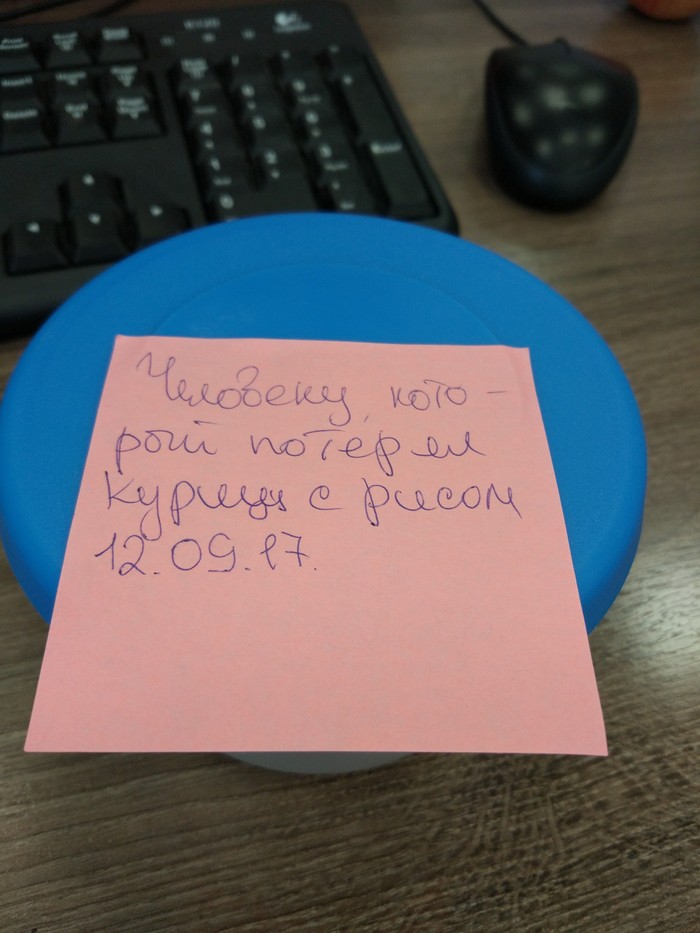 Человеку, кото-
рый потерял
курицу с рисом
12.09.17.